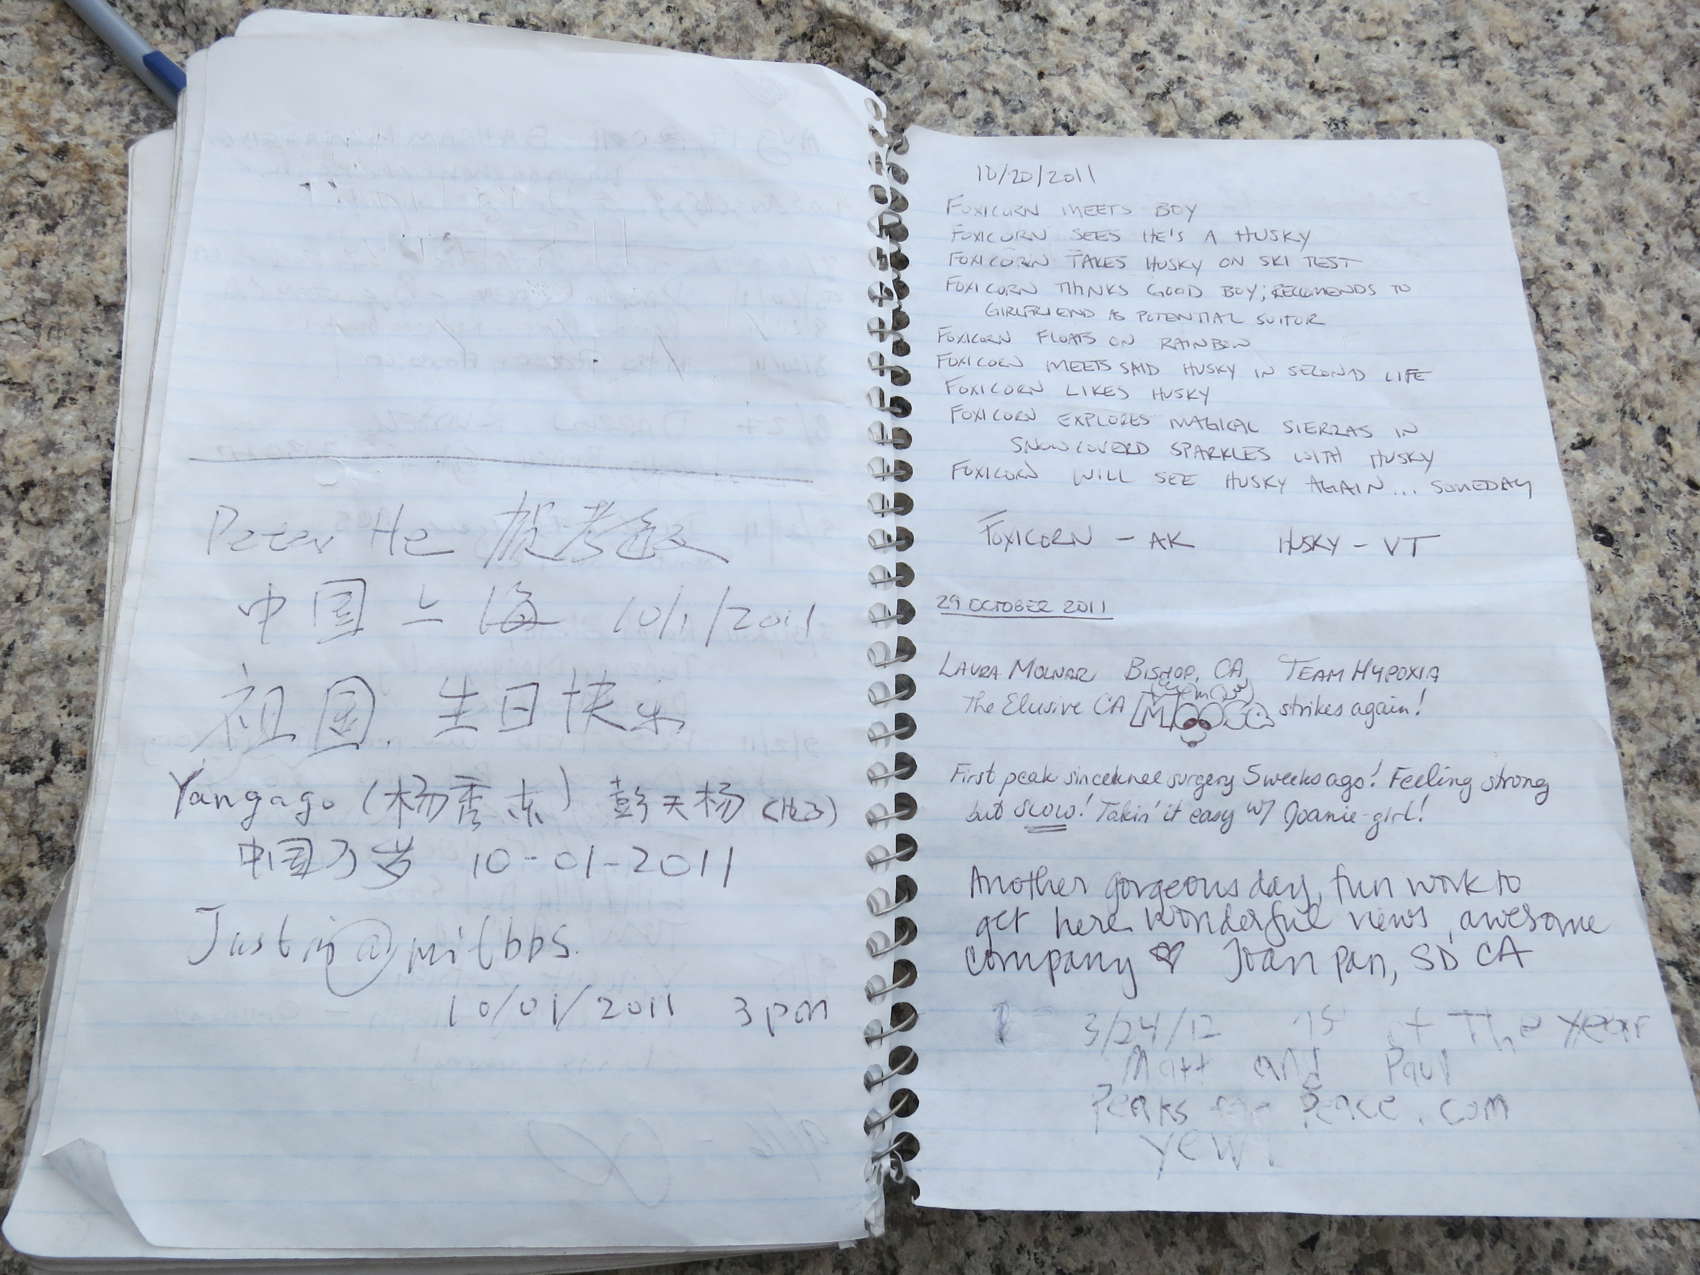 Peter He
中国上海 10/1/2011
祖国 生日快乐
Yangago (杨秀东) 彭天杨
中国万岁 10-01-2011
Justin@mitbbs.
10/01/2011 3pm
10/20/2011
FOXICORN MEETS BOY
FOXICORN SEES HE'S A HUSKY
FOXICORN TAKES HUSKY ON SKI TEST
FOXICORN THINKS GOOD BOY; RECOMENDS TO
GIRLFRIEND AS POTENTIAL SUITOR
FOXICORN FLOATS ON RAINBOW
FOXICORN MEETS SAID HUSKY IN SECOND LIFE
FOXICORN LIKES HUSKY
FOXICORN EXPLORES MAGICAL SIERRAS IN
SNOWCOVERD SPARKLES WITH HUSKY
FOXICORN WILL SEE HUSKY AGAIN... SOMEDAY
FOXICORN - AK HUSKY - VT
29 OCTOBER 2011
LAURA MOLNAR BISHOP, CA TEAM HYPOXIA
The Elusive CA MOOSE strikes again!
First peak since knee surgery 5 weeks ago! Feeling strong
but SLOW! Takin' it easy w/ Joanie-girl!
Another gorgeous day, fun work to
get here. Wonderful views, awesome
company ♡ Joan Pan, SD CA
3/24/12 of The year
Matt and Paul
Peaks for Peace.com
YEW!